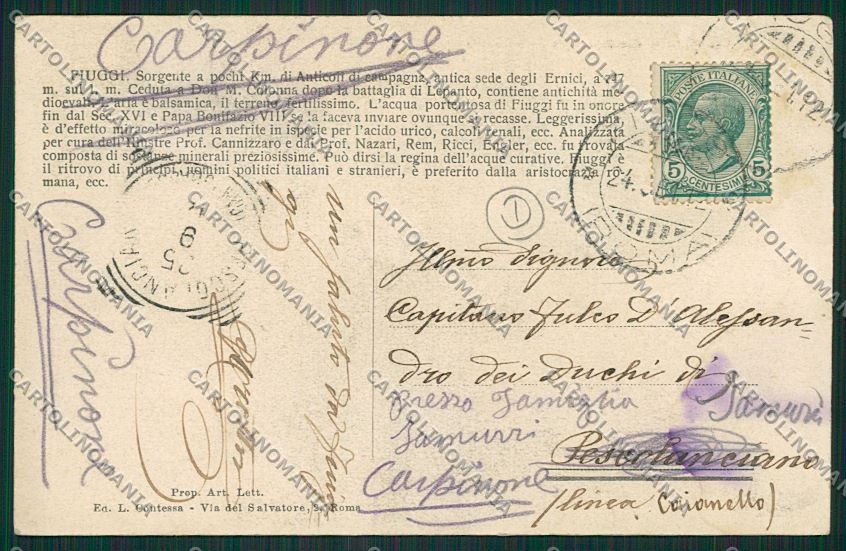 Carpinone
FIUGGI. Sorgente a pochi Km. di Anticoli di campagna, antica sede degli Ernici, a 747
m. sul l. m. Ceduta a Don M. Colonna dopo la battaglia di Lepanto, contiene antichità me-
dioevali. L'aria è balsamica, il terreno fertilissimo. L'acqua portentosa di Fiuggi fu in onore
fin dal Sec. XVI e Papa Bonifazio VIII se la faceva inviare ovunque si recasse. Leggerissima,
è d'effetto miracoloso per la nefrite in ispecie per l'acido urico, calcoli renali, ecc. Analizzata
per cura dell'Illustre Prof. Cannizzaro e dai Prof. Nazari, Rem, Ricci, Endler, ecc. fu trovata
composta di sostanze minerali preziosissime. Può dirsi la regina dell'acque curative. Fiuggi è
il ritrovo di principi, uomini politici italiani e stranieri, è preferito dalla aristocrazia ro-
mana, ecc.
POSTE ITALIANE
5 5
CENTESIMI
1
Illmo Signore
Capitano Fulco D'Alessan-
dro dei Duchi di
presso Famiglia Iamurri
Iamurri
Pescolanciano
Carpinone
(linea Caianello)
Carpinone
un saluto da Fiuggi
Prop. Art. Lett.
Ed. L. Contessa - Via del Salvatore, 2. Roma
CARTOLINOMANIA